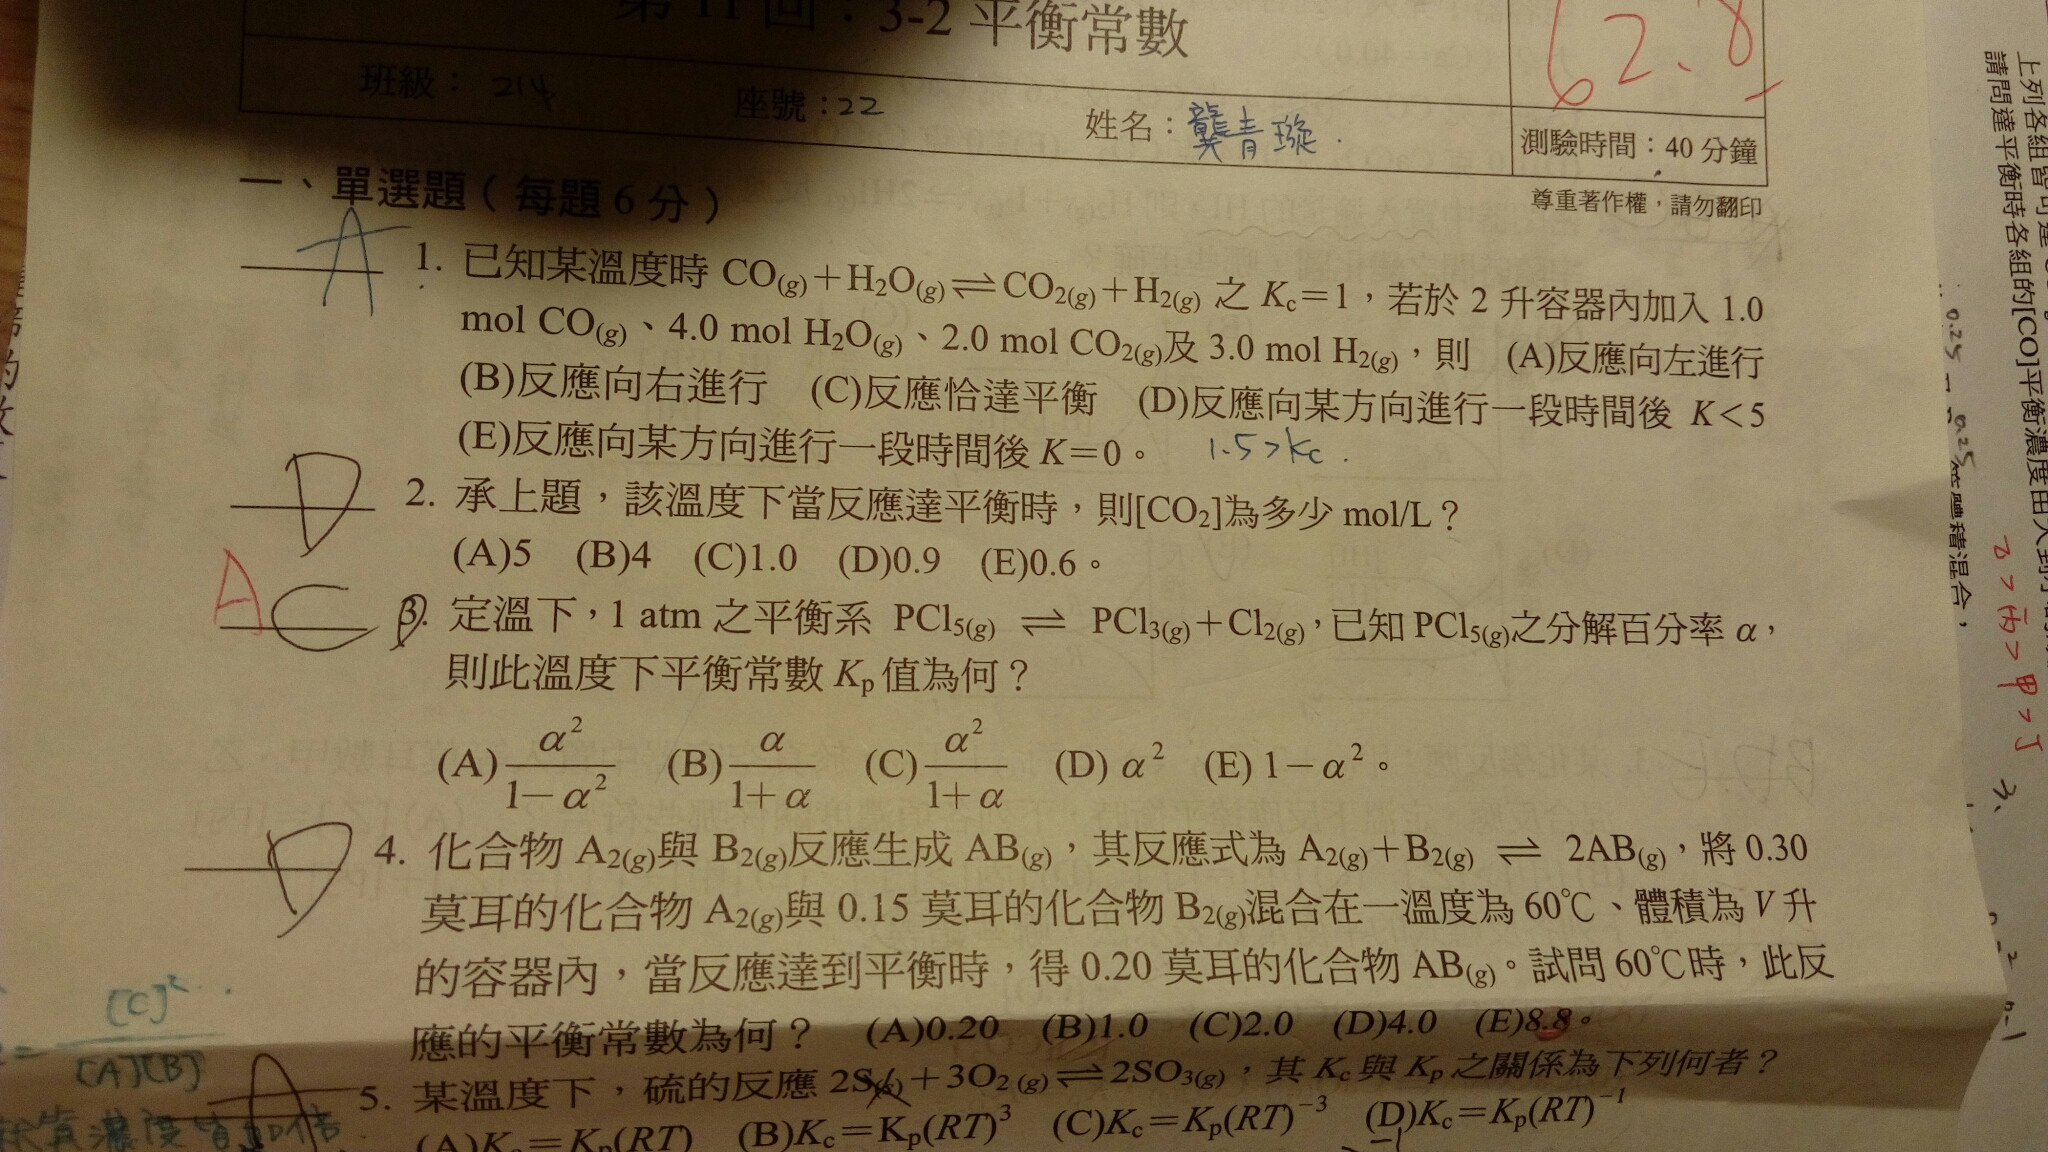 第 11 回：3-2 平衡常數
62.8
班級：214
座號：22
姓名：龔青璇
測驗時間：40 分鐘
尊重著作權，請勿翻印
一、單選題（每題 6 分）
A
1. 已知某溫度時 CO(g)＋H₂O(g)⇌CO₂(g)＋H₂(g) 之 Kc＝1，若於 2 升容器內加入 1.0
mol CO(g)、4.0 mol H₂O(g)、2.0 mol CO₂(g)及 3.0 mol H₂(g)，則 (A)反應向左進行
(B)反應向右進行 (C)反應恰達平衡 (D)反應向某方向進行一段時間後 K＜5
(E)反應向某方向進行一段時間後 K＝0。 1.5>Kc.
D
2. 承上題，該溫度下當反應達平衡時，則[CO₂]為多少 mol/L？
(A)5 (B)4 (C)1.0 (D)0.9 (E)0.6。
A C
3. 定溫下，1 atm 之平衡系 PCl₅(g) ⇌ PCl₃(g)＋Cl₂(g)，已知 PCl₅(g)之分解百分率 α，
則此溫度下平衡常數 Kp 值為何？
(A) α²/(1－α²) (B) α/(1＋α) (C) α²/(1＋α) (D) α² (E) 1－α²。
D
4. 化合物 A₂(g)與 B₂(g)反應生成 AB(g)，其反應式為 A₂(g)＋B₂(g) ⇌ 2AB(g)，將 0.30
莫耳的化合物 A₂(g)與 0.15 莫耳的化合物 B₂(g)混合在一溫度為 60℃、體積為 V 升
的容器內，當反應達到平衡時，得 0.20 莫耳的化合物 AB(g)。試問 60℃時，此反
應的平衡常數為何？ (A)0.20 (B)1.0 (C)2.0 (D)4.0 (E)8.8。
[C]²
[A][B]
A
5. 某溫度下，硫的反應 2S(s)＋3O₂(g)⇌2SO₃(g)，其 Kc 與 Kp 之關係為下列何者？
(A)Kc＝Kp(RT) (B)Kc＝Kp(RT)³ (C)Kc＝Kp(RT)⁻³ (D)Kc＝Kp(RT)⁻¹
-1
濃度皆加倍
上列各組皆可達
請問達平衡時各組的[CO]平衡濃度由大到
乙>丙>甲>丁
0.25
0.25
等體積混合，